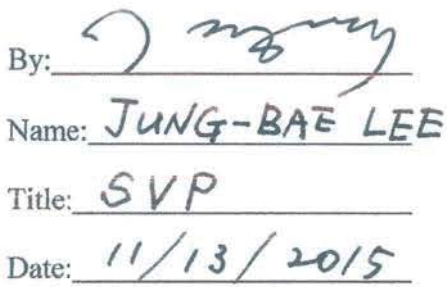 By:
Name: JUNG-BAE LEE
Title: SVP
Date: 11/13/2015